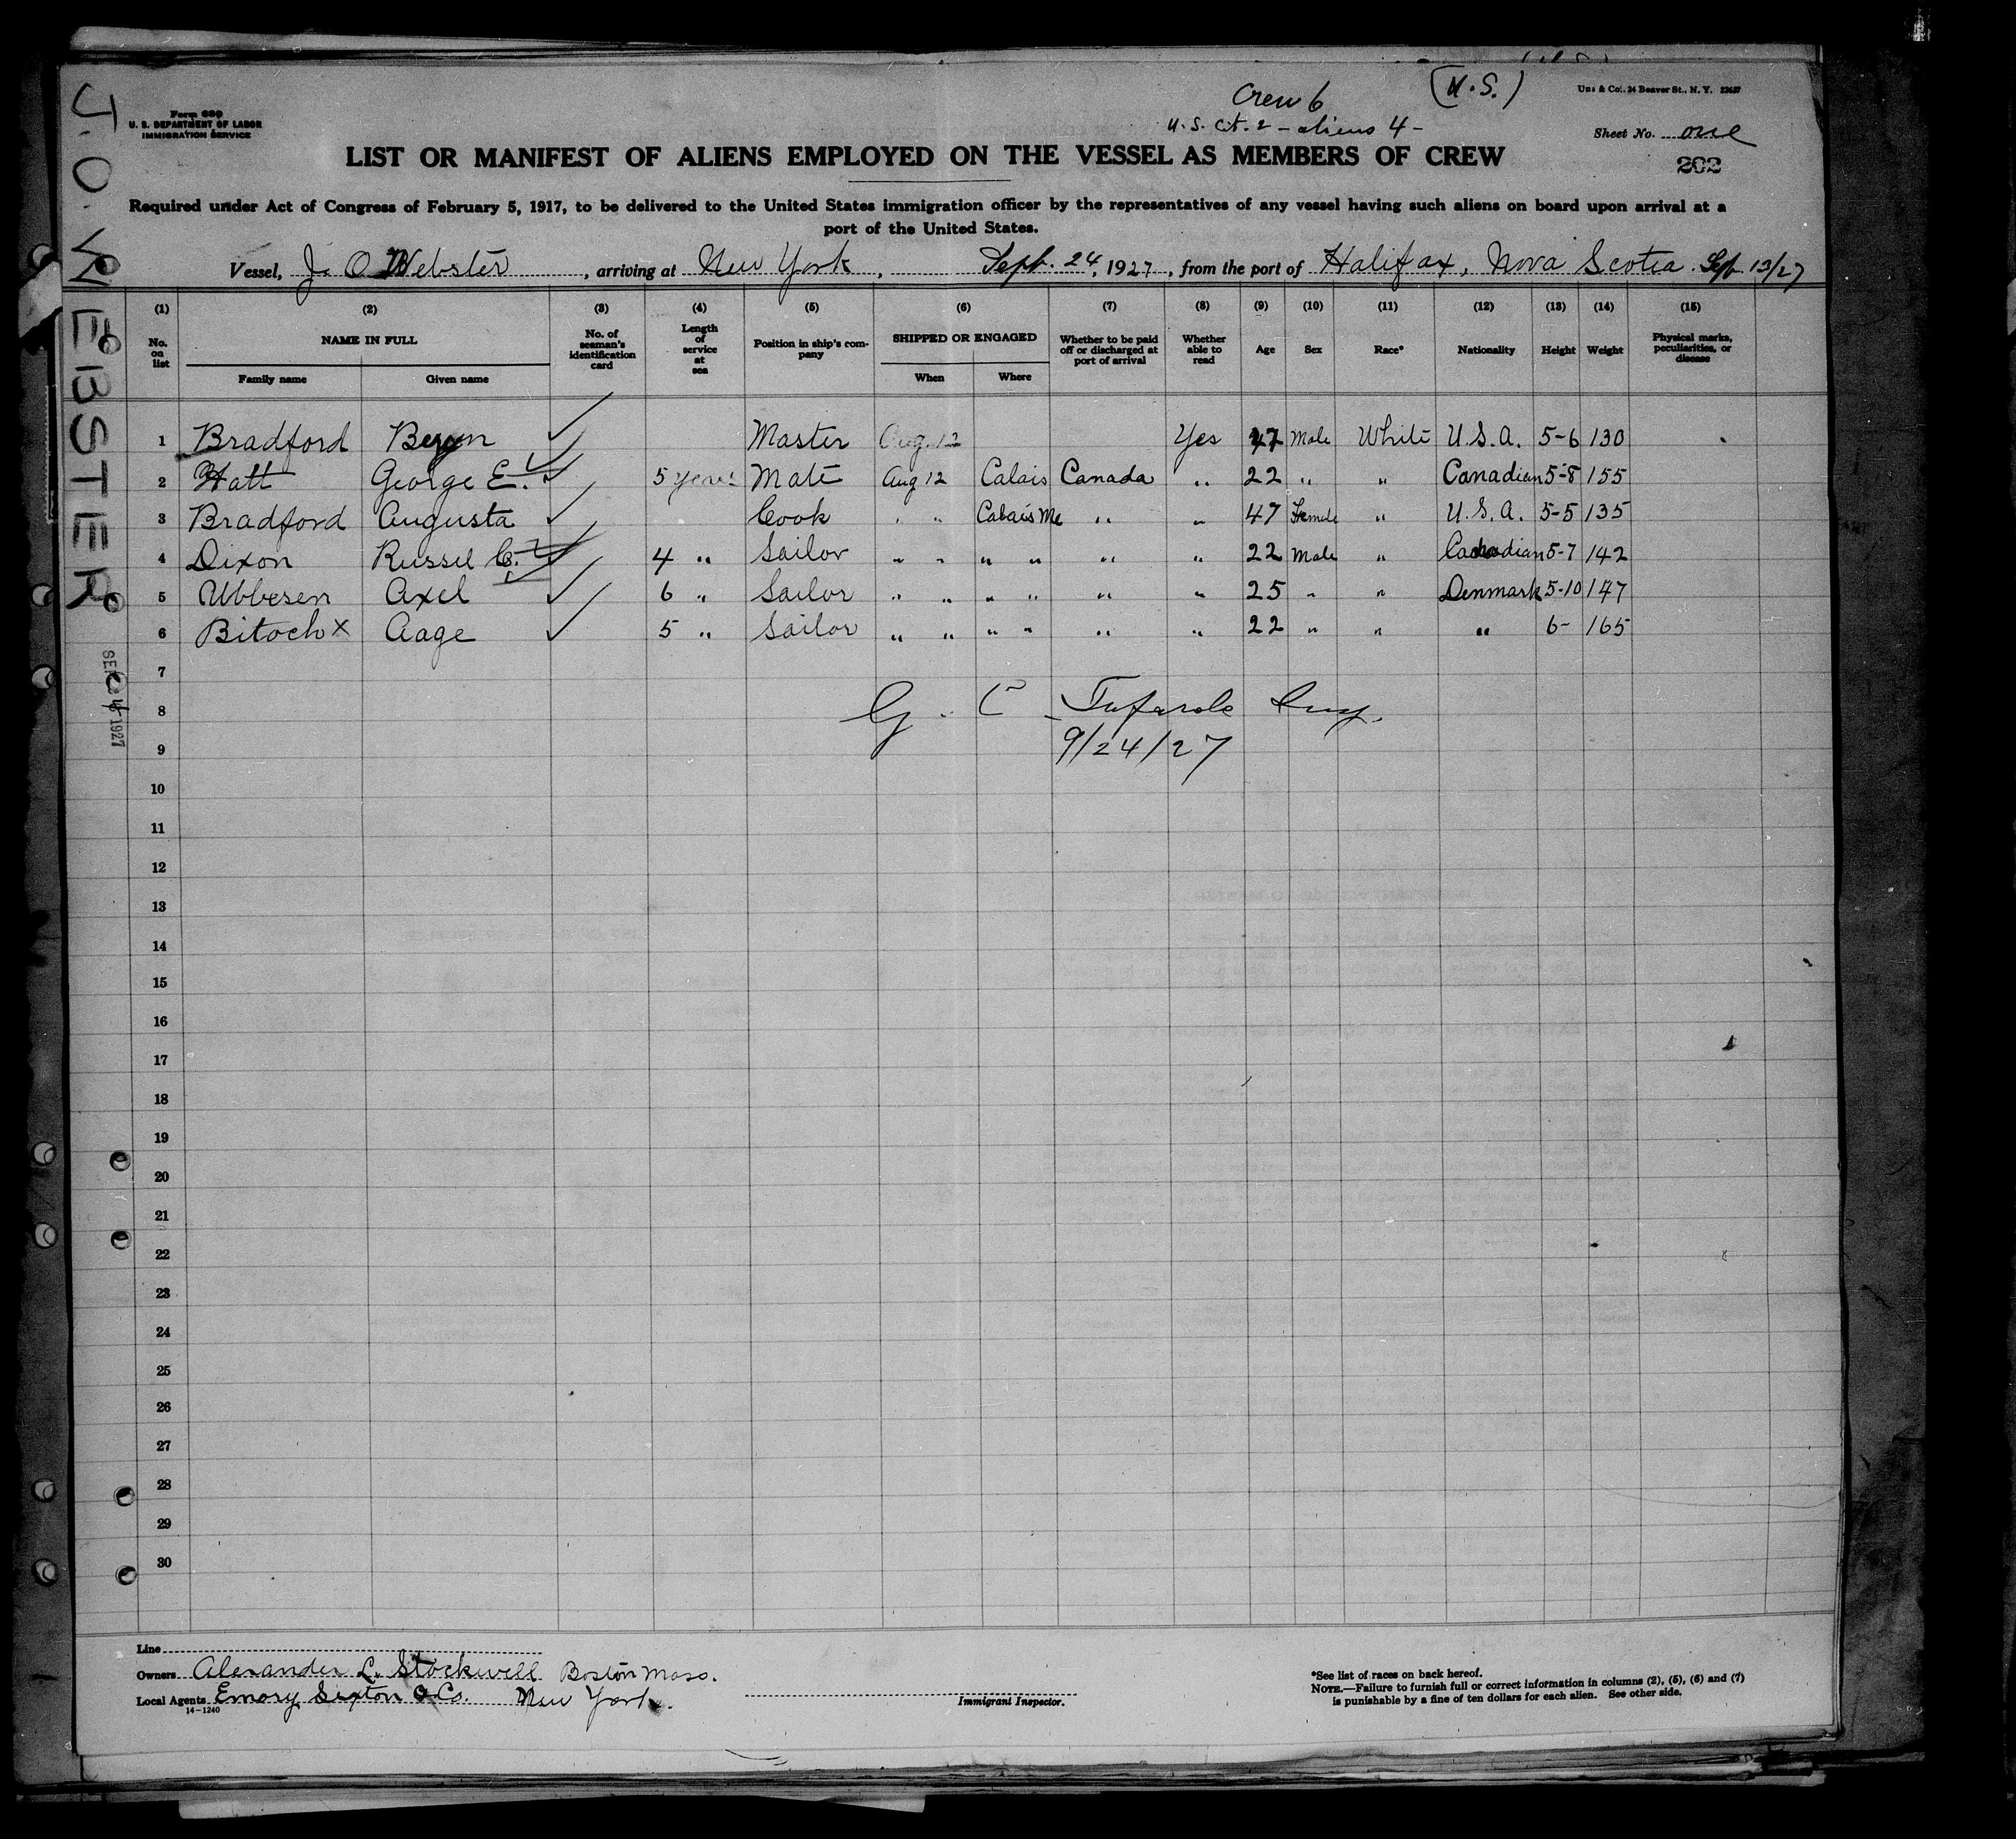 J. O. WEBSTER
SEP 24 1927
Form 680
U. S. DEPARTMENT OF LABOR
IMMIGRATION SERVICE
Crew 6
(U.S.)
U.S. cit. 2 - aliens 4 -
Sheet No. one
202
LIST OR MANIFEST OF ALIENS EMPLOYED ON THE VESSEL AS MEMBERS OF CREW
Required under Act of Congress of February 5, 1917, to be delivered to the United States immigration officer by the representatives of any vessel having such aliens on board upon arrival at a
port of the United States.
Vessel, J. O. Webster, arriving at New York, Sept. 24, 1927, from the port of Halifax, Nova Scotia. Sept 13/27
(1) (2) (3) (4) (5) (6) (7) (8) (9) (10) (11) (12) (13) (14) (15)
No. on list
NAME IN FULL
Family name Given name
No. of seaman's identification card
Length of service at sea
Position in ship's company
SHIPPED OR ENGAGED
When Where
Whether to be paid off or discharged at port of arrival
Whether able to read
Age Sex Race* Nationality Height Weight
Physical marks, peculiarities, or disease
1 Bradford Master Aug. 12 Yes 47 Male White U.S.A. 5-6 130
2 Hatt George E. 5 years Mate Aug 12 Calais Canada " 22 " " Canadian 5-8 155
3 Bradford Augusta Cook " " Calais Me " " 47 Female " U.S.A. 5-5 135
4 Dixon Russel C. 4 " Sailor " " " " " " 22 Male " Canadian 5-7 142
5 Ubbesen Axel 6 " Sailor " " " " " " 25 " " Denmark 5-10 147
6 Bitoch x Aage 5 " Sailor " " " " " " 22 " " " 6- 165
7
8 G. C.
9 9/24/27
10
11
12
13
14
15
16
17
18
19
20
21
22
23
24
25
26
27
28
29
30
Line
Owners Alexander L. Stockwell Boston Mass.
Local Agents Emory Sexton & Co. New York.
14-1240
Immigrant Inspector.
*See list of races on back hereof.
NOTE.—Failure to furnish full or correct information in columns (2), (5), (6) and (7)
is punishable by a fine of ten dollars for each alien. See other side.